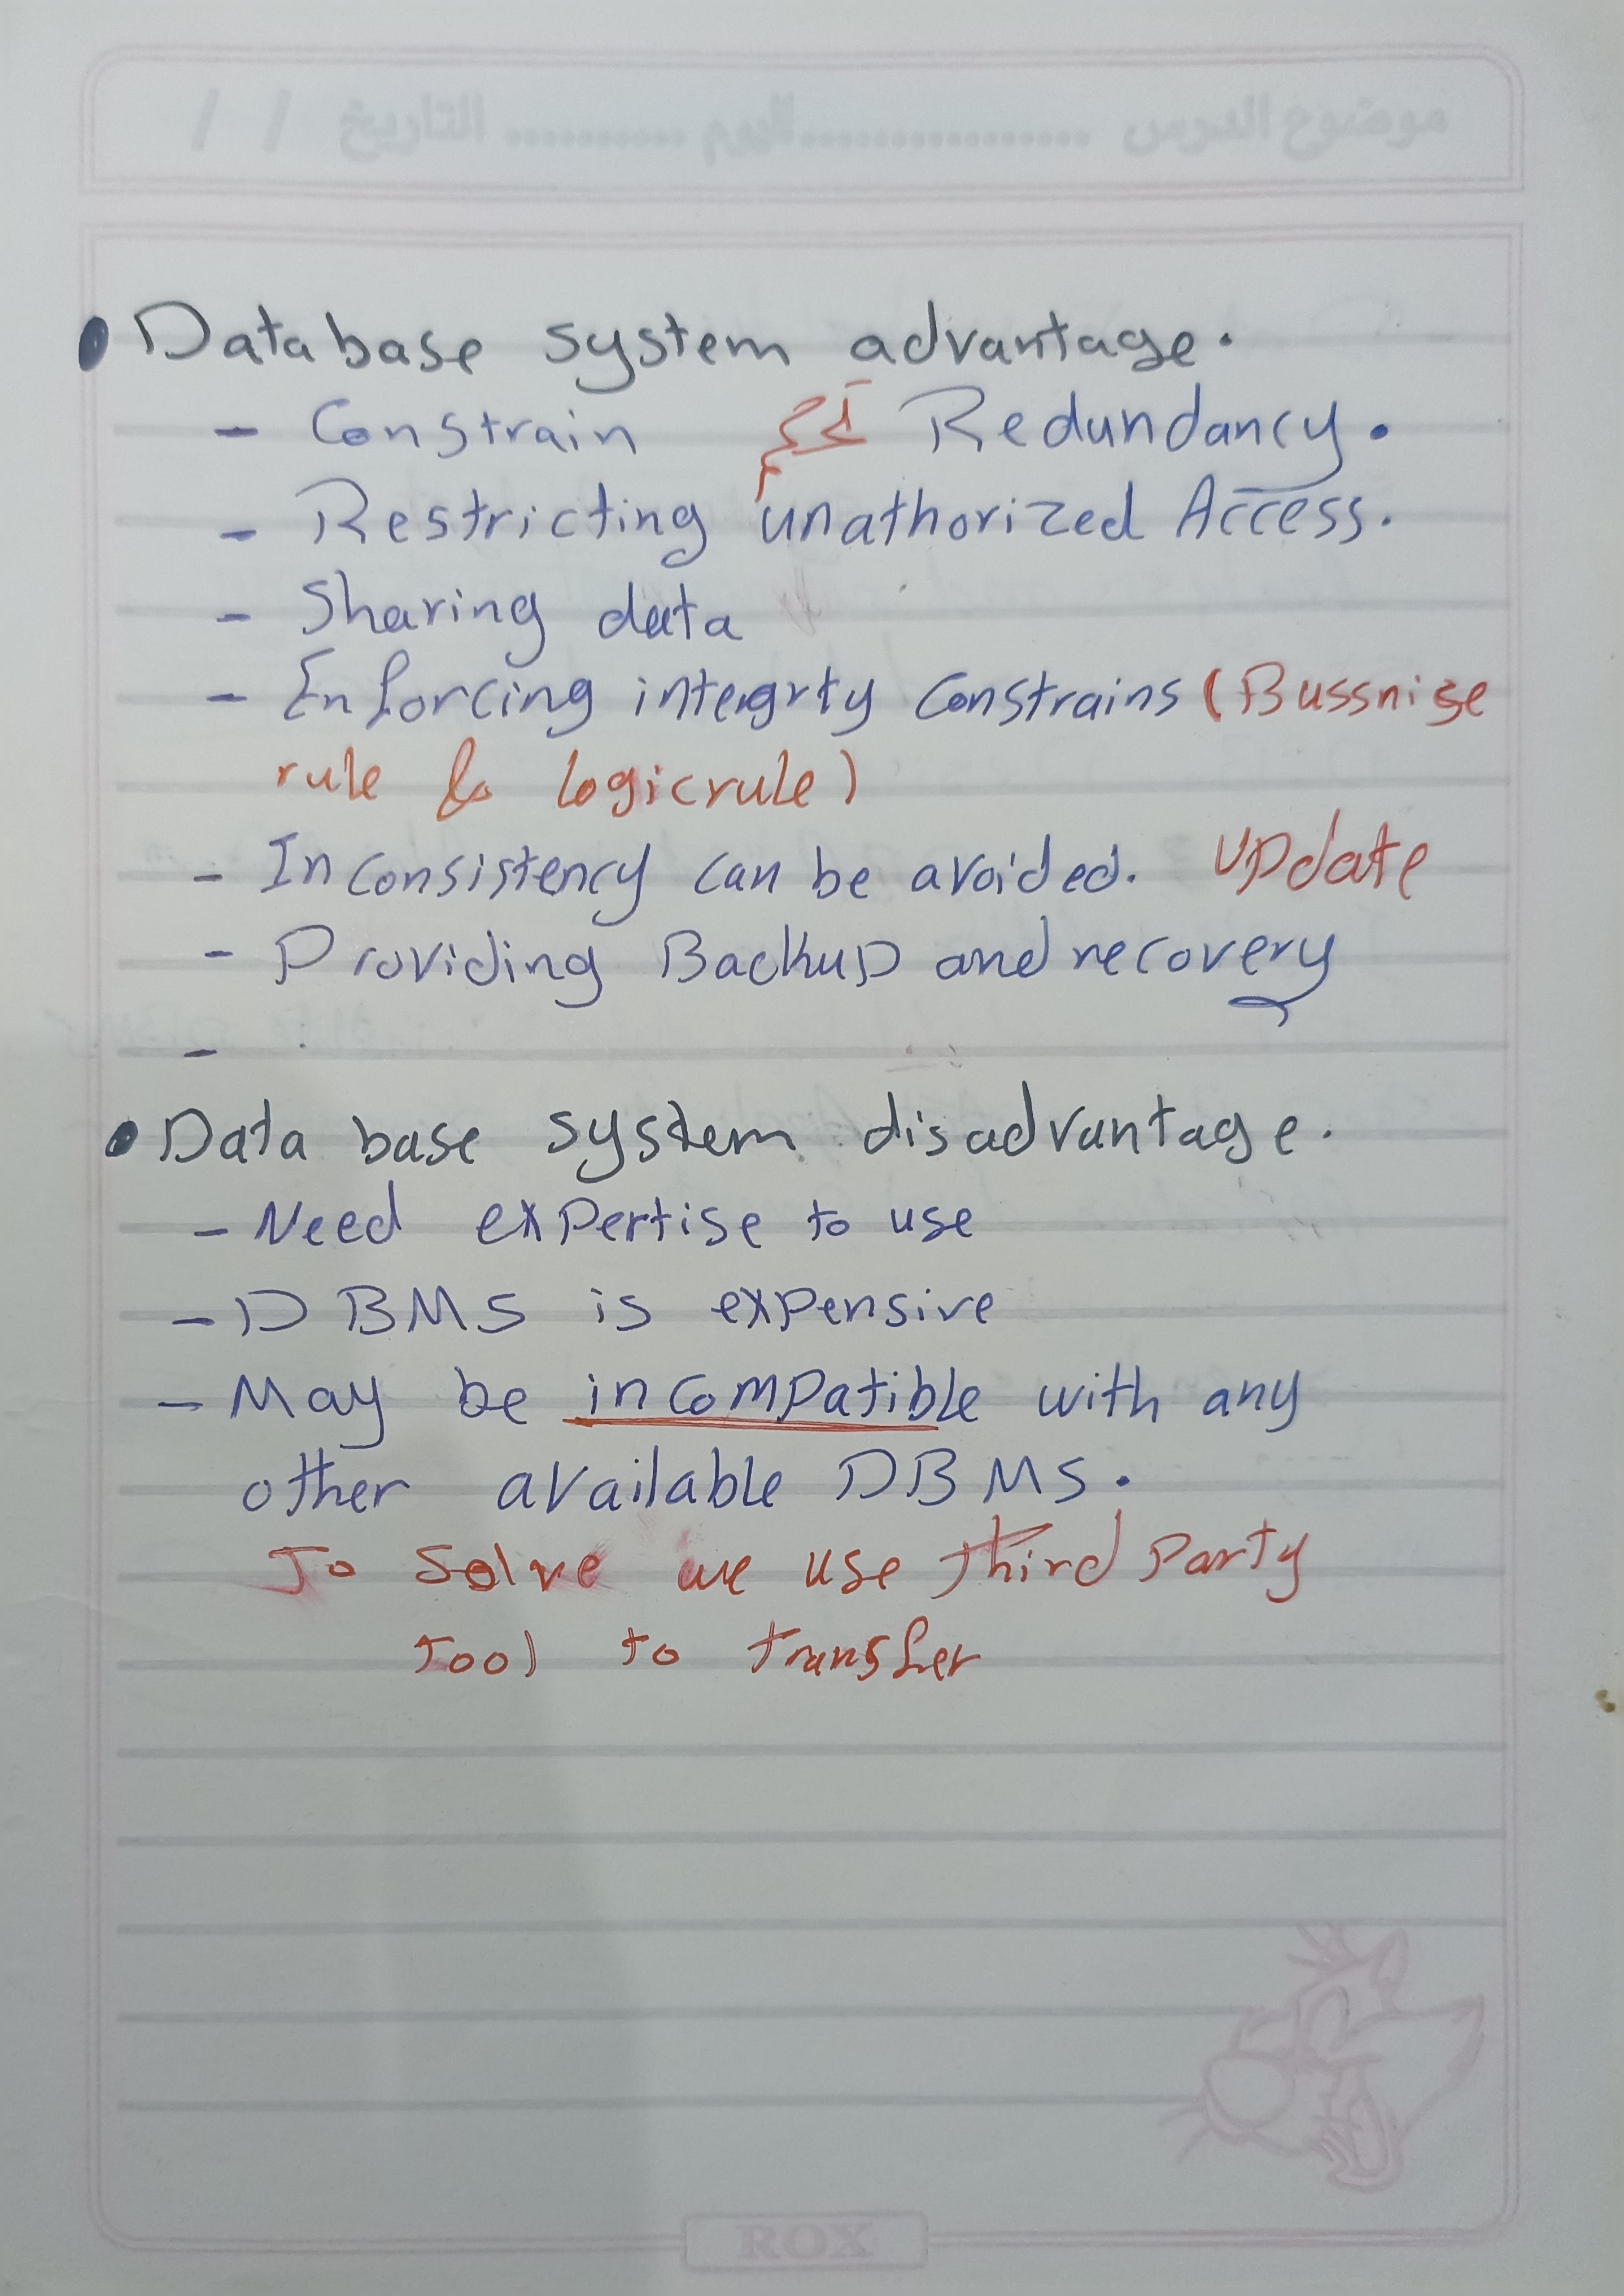 موضوع الدرس ................ اليوم .......... التاريخ / /
• Database system advantage.
- Constrain تحكم Redundancy.
- Restricting unathorized Access.
- Sharing data
- Enforcing integrty Constrains (Bussnise
rule & logicrule)
- Inconsistency can be avoided. Update
- Providing Backup and recovery
-
• Data base system disadvantage.
- Need expertise to use
- DBMS is expensive
- May be incompatible with any
other available DBMS.
To solve we use third Party
Tool to transfer
ROX